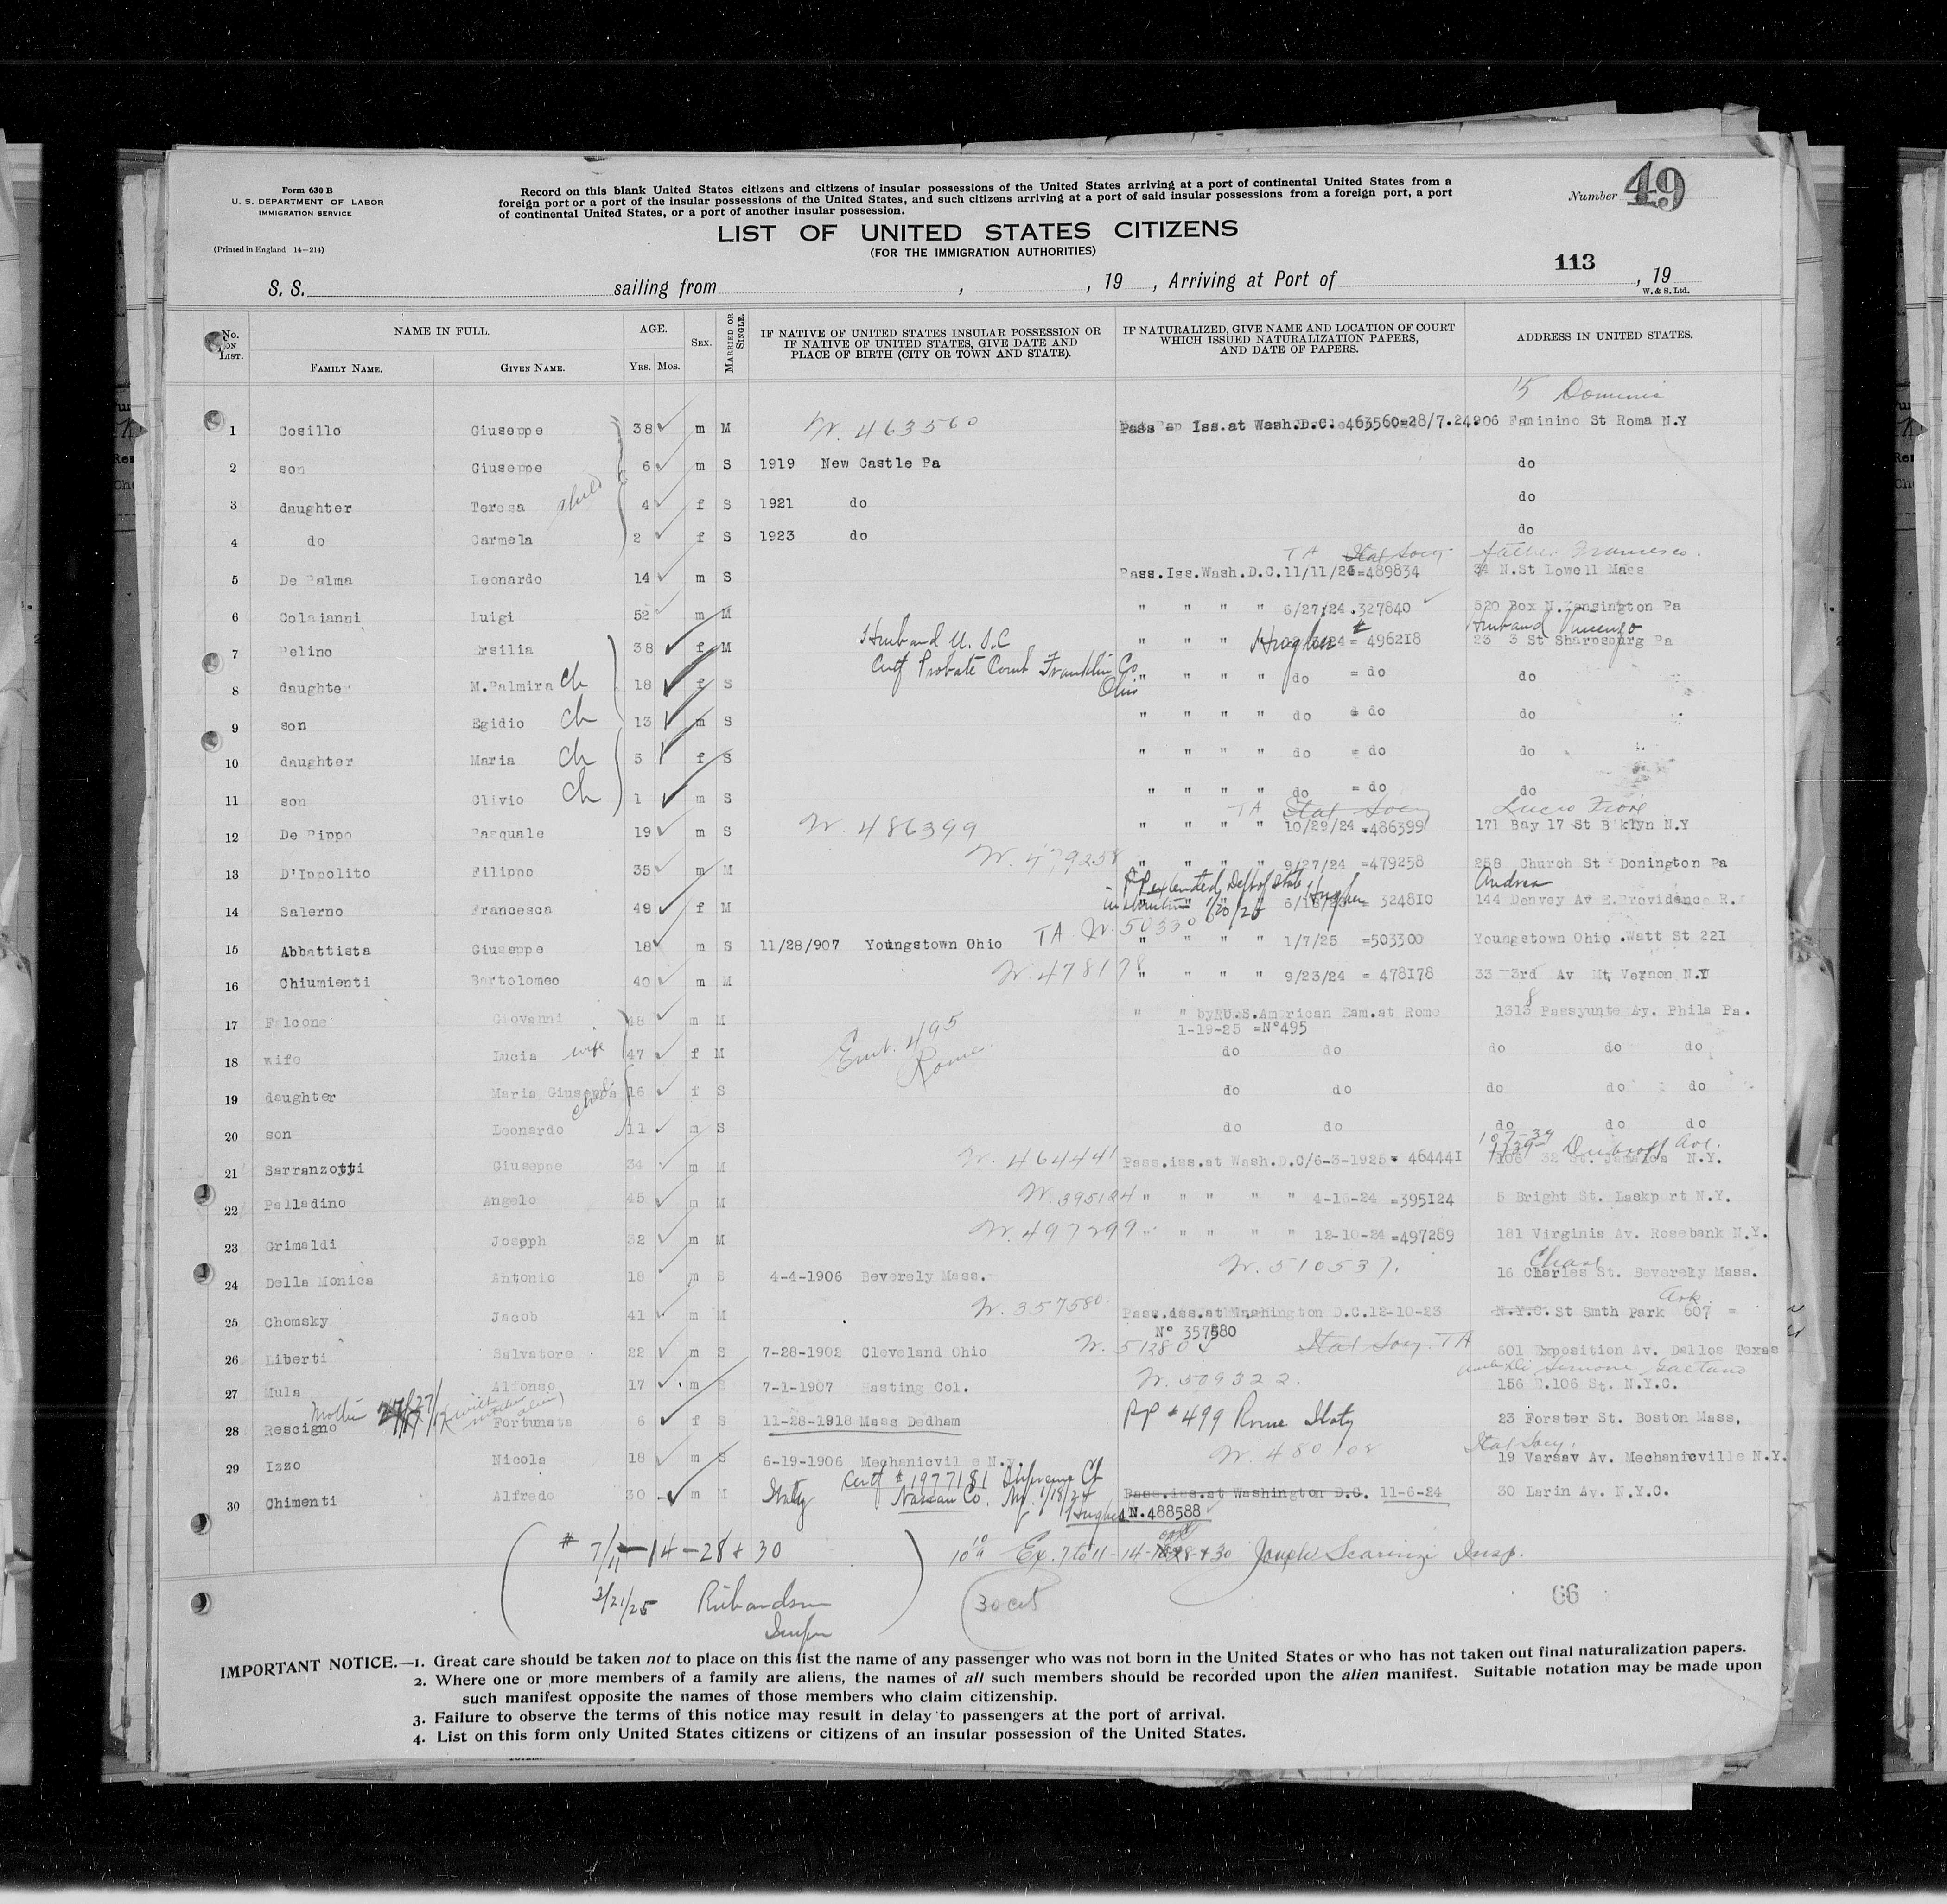 Form 630 B
U. S. DEPARTMENT OF LABOR
IMMIGRATION SERVICE
(Printed in England 14-214)
Record on this blank United States citizens and citizens of insular possessions of the United States arriving at a port of continental United States from a
foreign port or a port of the insular possessions of the United States, and such citizens arriving at a port of said insular possessions from a foreign port, a port
of continental United States, or a port of another insular possession.
Number 49
LIST OF UNITED STATES CITIZENS
(FOR THE IMMIGRATION AUTHORITIES)
113
S. S. sailing from , , 19 , Arriving at Port of , 19
W. & S. Ltd.
No. ON LIST. NAME IN FULL. FAMILY NAME. GIVEN NAME. AGE. YRS. MOS. SEX. MARRIED OR SINGLE. IF NATIVE OF UNITED STATES INSULAR POSSESSION OR IF NATIVE OF UNITED STATES, GIVE DATE AND PLACE OF BIRTH (CITY OR TOWN AND STATE). IF NATURALIZED, GIVE NAME AND LOCATION OF COURT WHICH ISSUED NATURALIZATION PAPERS, AND DATE OF PAPERS. ADDRESS IN UNITED STATES.
15 Dominic
1 Cosillo Giuseppe 38 m M W. 463560 Pass Iss.at Wash.D.C. 463560=28/7.24 906 Faminino St Roma N.Y
2 son Giuseppe 6 m S 1919 New Castle Pa do
3 daughter Teresa child 4 f S 1921 do do
4 do Carmela 2 f S 1923 do do
TA Ital Socy father Francesco.
5 De Palma Leonardo 14 m S Pass.Iss.Wash.D.C.11/11/24=489834 34 N.St Lowell Mass
6 Colaianni Luigi 52 m M " " " " 6/27/24.327840 520 Box N.Kensington Pa
Husband U.S.C Husband Vincenzo
7 Pelino Ersilia 38 f M " " " Hughes = 496218 23 3 St Sharpsburg Pa
Certf Probate Court Franklin Co. Ohio
8 daughter M.Palmira ch 18 f S " " " " do = do do
9 son Egidio ch 13 m S " " " " do = do do
10 daughter Maria ch 5 f S " " " " do = do do
11 son Clivio ch 1 m S " " " " do = do do
TA Ital Socy Lucio Fiore
12 De Pippo Pasquale 19 m S W. 486399 " " " " 10/29/24 =486399 171 Bay 17 St B'klyn N.Y
13 D'Ippolito Filippo 35 m M W. 479258 " " " " 9/27/24 =479258 258 Church St Donington Pa
PP extended Dept of State Hughes Andrea
14 Salerno Francesca 49 f M = 324810 144 Denvey Av E.Providence R.I
15 Abbattista Giuseppe 18 m S 11/28/907 Youngstown Ohio TA W. 503300 " " " " 1/7/25 =503300 Youngstown Ohio .Watt St 221
16 Chiumienti Bartolomeo 40 m M W. 478178 " " " " 9/23/24 = 478178 33 -3rd Av Mt Vernon N.Y
17 Falcone Giovanni 48 m M Emb. 495 Rome " " by U.S.American Eam.at Rome 1318 Passyunte Av. Phila Pa.
1-19-25 =N°495
18 wife Lucia wife 47 f M do do do do do
19 daughter Maria Giuseppa child 16 f S do do do do do
20 son Leonardo 11 m S do do do do do
107-34
21 Sarranzotti Giuseppe 34 m M W. 464441 Pass.iss.at Wash.D.C/6-3-1925= 464441 106 32 St. Jamaica N.Y.
22 Palladino Angelo 45 m M W. 395124 " " " " " 4-16-24 =395124 5 Bright St. Lackport N.Y.
23 Grimaldi Joseph 32 m M W. 497299 " " " " " 12-10-24=497289 181 Virginia Av. Rosebank N.Y.
24 Della Monica Antonio 18 m S 4-4-1906 Beverely Mass. W. 510537. 16 Charles St. Beverely Mass.
Ark.
25 Chomsky Jacob 41 m M W. 357580 Pass.iss.at Washington D.C.12-10-23 N.Y.C. St Smth Park 607 =
N° 357580
26 Liberti Salvatore 22 m S 7-28-1902 Cleveland Ohio Ital Socy. TA 601 Exposition Av. Dallos Texas
Simone Gaetano
27 Mula Alfonso 17 m S 7-1-1907 Hasting Col. W. 509322. 156 E.106 St. N.Y.C.
Mother
28 Rescigno Fortunata 6 f S 11-28-1918 Mass Dedham PP #499 Rome Italy 23 Forster St. Boston Mass.
Ital Socy.
29 Izzo Nicola 18 m S 6-19-1906 Mechanicville N.Y. W. 480102 19 Varsav Av. Mechanicville N.Y.
Certf #1977181 Supreme Ct
30 Chimenti Alfredo 30 m M Italy Nassau Co. NY. 1/18/24 Pass.iss.at Washington D.C. 11-6-24 30 Larin Av. N.Y.C.
Hughes N.488588
# 7/11-14-28+30
Ex. 7 to 11-14-28+30 Joseph Scarinzi Insp.
3/21/25 Richardson
Inspr
30 cit
66
IMPORTANT NOTICE.—1. Great care should be taken not to place on this list the name of any passenger who was not born in the United States or who has not taken out final naturalization papers.
2. Where one or more members of a family are aliens, the names of all such members should be recorded upon the alien manifest. Suitable notation may be made upon
such manifest opposite the names of those members who claim citizenship.
3. Failure to observe the terms of this notice may result in delay to passengers at the port of arrival.
4. List on this form only United States citizens or citizens of an insular possession of the United States.